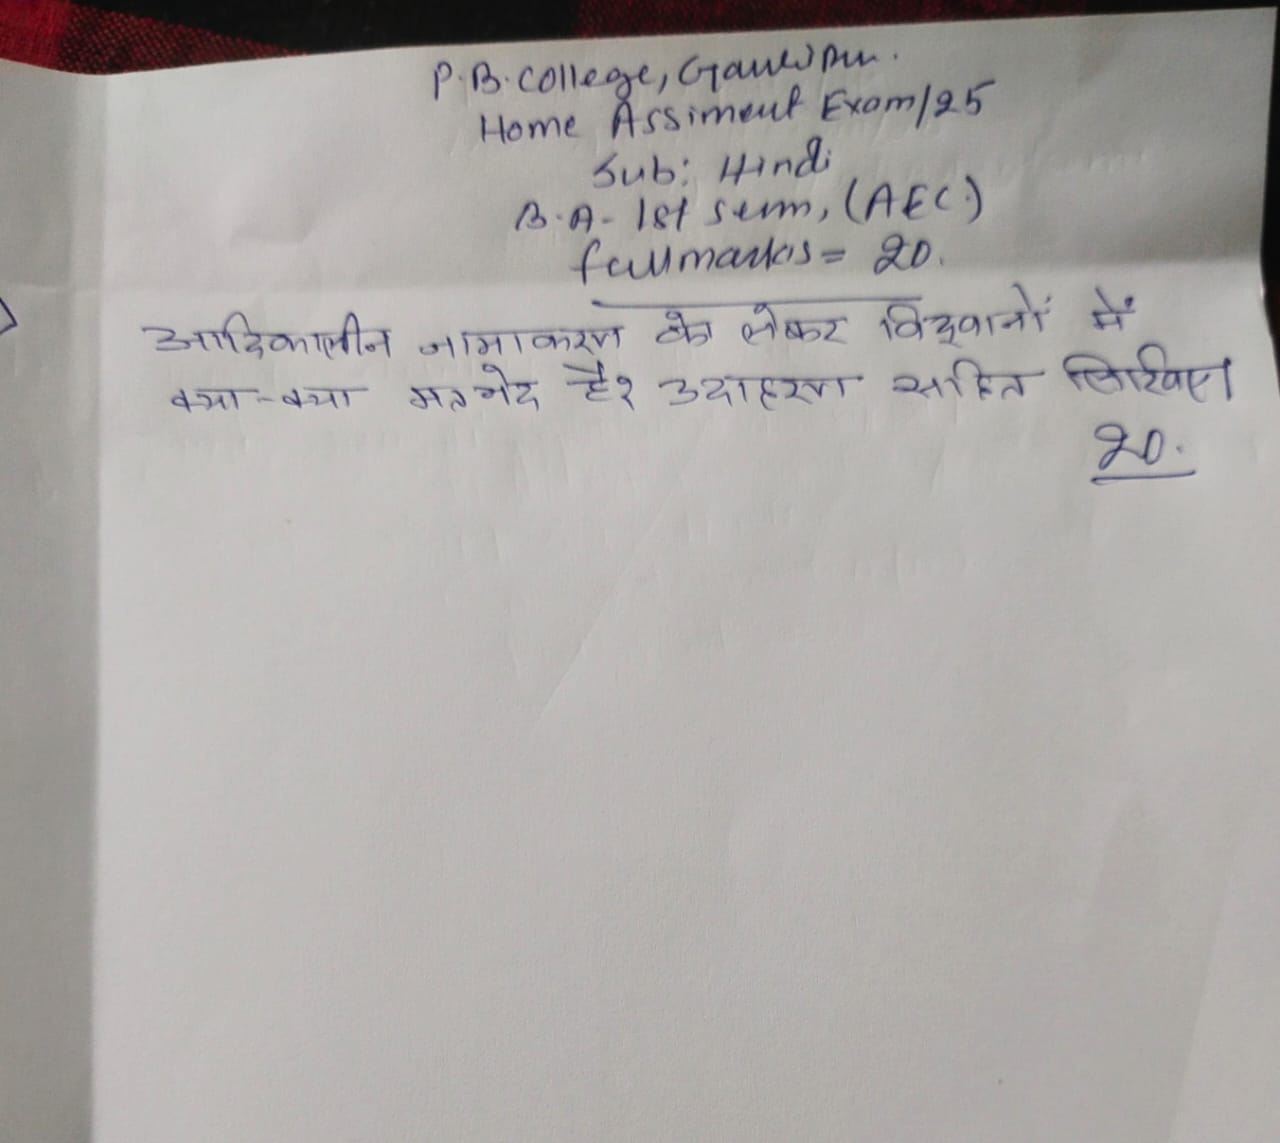 P.B. College, Gauripur.
Home Assiment Exam/25
Sub: Hindi
B.A- 1st sem, (AEC.)
full marks = 20.
आदिकालीन नामाकरण को लेकर विद्वानों में
क्या-क्या मतभेद है? उदाहरण सहित लिखिए।
20.